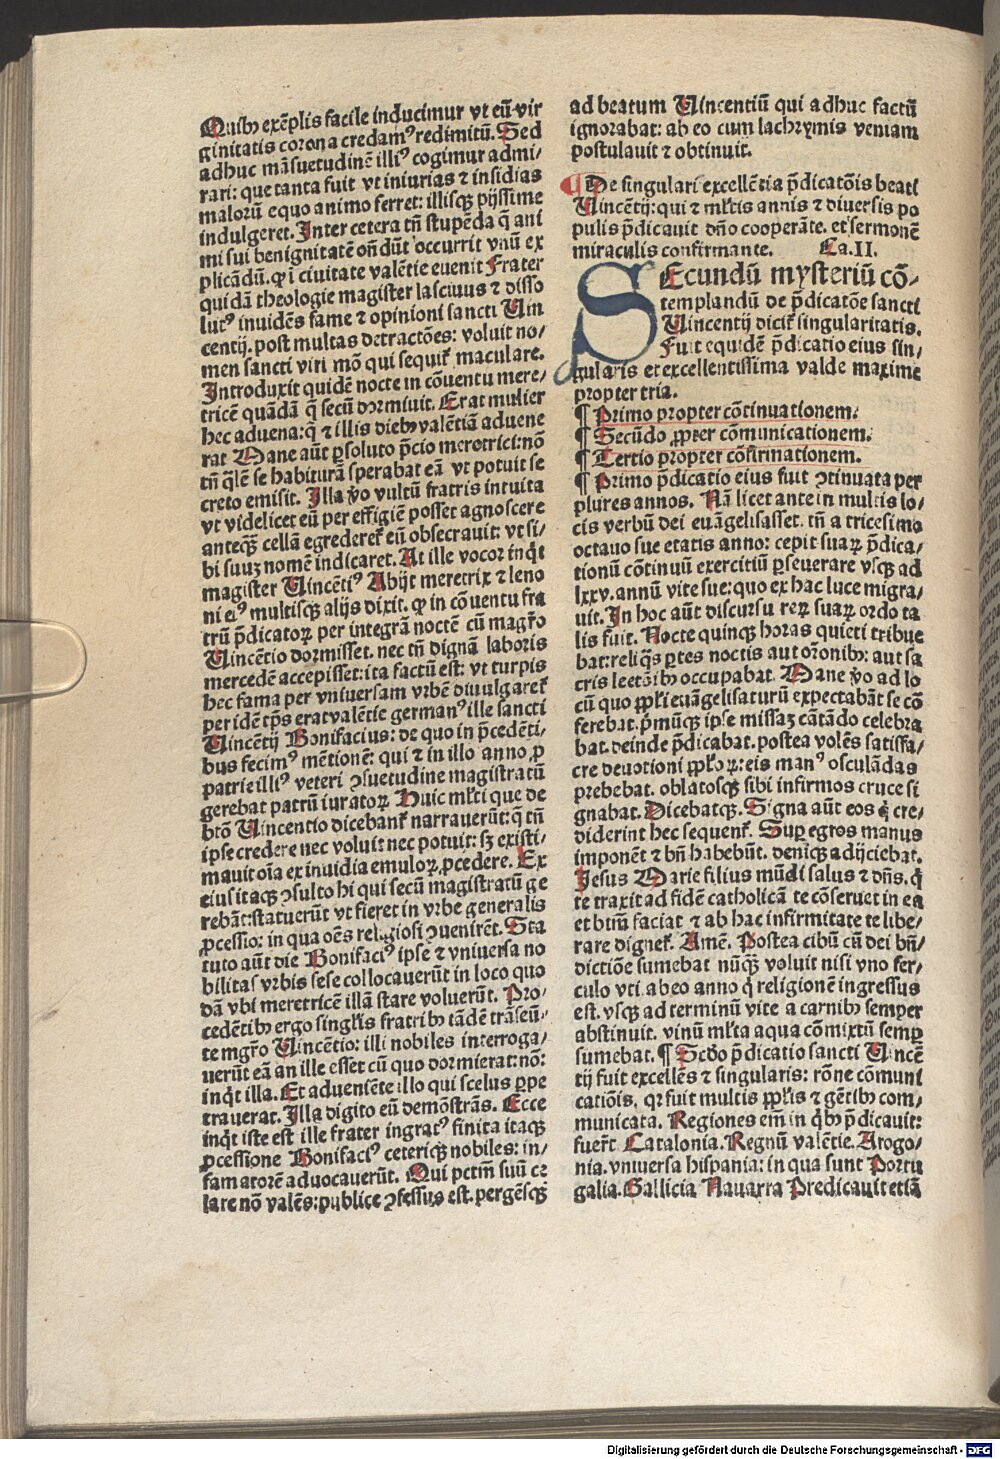 Quibꝰ exēplis facile inducimur vt eū vir
ginitatis corona credamꝰ redimitū. Sed
adhuc māsuetudinē illiꝰ cogimur admi/
rari: que tanta fuit vt iniurias ⁊ insidias
malorū equo animo ferret: illisqꝫ pijssime
indulgeret. Inter cetera tn̄ stupēda q̄ ani
mi sui benignitatē on̄dūt occurrit vnū ex
plicādū. ꝙ ī ciuitate valētie euenit Frater
quidā theologie magister lasciuus ⁊ disso
lutꝰ inuidēs fame ⁊ opinioni sancti Uin
centij. post multas detractōes: voluit no/
men sancti viri mō qui sequit̄ maculare.
Introduxit quidē nocte in cōuentu mere/
tricē quādā q̄ secū dormiuit. Erat mulier
hec aduena: q̄ ⁊ illis diebꝰ valētiā aduene
rat Mane aūt ꝑsoluto p̄cio meretrici: nō
tn̄ q̄lē se habiturā sperabat eā vt potuit se
creto emisit. Illa v̄o vultū fratris intuita
vt videlicet eū per effigiē posset agnoscere
anteqꝫ cellā egrederet̄ eū obsecrauit: vt si/
bi suuꝫ nomē indicaret. At ille vocor inq̇t
magister Uincētiꝰ Abijt meretrix ⁊ leno
ni eiꝰ multisqꝫ alijs dixit. ꝙ in cōuentu fra
trū p̄dicatoꝝ per integrā noctē cū magr̄o
Uincētio dormisset. nec tn̄ dignā laboris
mercedē accepisset: ita factū est: vt turpis
hec fama per vniuersam vrbē diuulgaret̄
per idē tp̄s erat valētie germanꝰ ille sancti
Uincētij Bonifacius: de quo in p̄cedēti/
bus fecimꝰ mētionē: qui ⁊ in illo anno ꝓ
patrie illiꝰ veteri ↄsuetudine magistratū
gerebat patrū iuratoꝝ Huic ml̄ti que de
btō Uincentio dicebant̄ narrauerūt: q̄ tn̄
ipse credere nec voluit nec potuit: sꝫ existi/
mauit oīa ex inuidia emuloꝝ ꝓcedere. Ex
eius itaqꝫ ↄsulto hi qui secū magistratū ge
rebāt: statuerūt vt fieret in vrbe generalis
ꝓcessio: in qua oēs religiosi ↄuenirēt. Sta
tuto aūt die Bonifaciꝰ ipse ⁊ vniuersa no
bilitas vrbis sese collocauerūt in loco quo
dā vbi meretricē illā stare voluerūt. Pro/
cedētibꝰ ergo singl̄is fratribꝰ tādē trāseū/
te mgr̄o Uincētio: illi nobiles interroga/
uerūt eā an ille esset cū quo dormierat: nō:
inq̇t illa. Et adueniēte illo qui scelus ꝑpe
trauerat. Illa digito eū demōstrās. Ecce
inq̇t iste est ille frater ingratꝰ finita itaqꝫ
ꝓcessione Bonifaciꝰ ceteriqꝫ nobiles: in/
famatorē aduocauerūt. Qui pctm̄ suū ce
lare nō valēs: publice ↄfessus est. pergēsqꝫ
ad beatum Uincentiū qui adhuc factū
ignorabat: ab eo cum lachrymis veniam
postulauit ⁊ obtinuit.
¶ De singulari excellētia p̄dicatōis beati
Uincētij: qui ⁊ ml̄tis annis ⁊ diuersis po
pulis p̄dicauit dn̄o cooperāte. et sermonē
miraculis confirmante. Ca. II.
SEcundū mysteriū cō-
templandū de p̄dicatōe sancti
Uincentij dicit̄ singularitatis.
Fuit equidē p̄dicatio eius sin/
gularis et excellentissima valde maxime
propter tria.
¶ Primo propter cōtinuationem.
¶ Secūdo ꝓpter cōmunicationem.
¶ Tertio propter cōfirmationem.
¶ Primo p̄dicatio eius fuit ↄtinuata per
plures annos. Nā licet ante in multis lo/
cis verbū dei euāgelisasset. tn̄ a tricesimo
octauo sue etatis anno: cepit suaꝝ p̄dica/
tionū cōtinuū exercitiū ꝑseuerare vsqꝫ ad
lxxv. annū vite sue: quo ex hac luce migra/
uit. In hoc aūt discursu reꝝ suaꝝ ordo ta
lis fuit. Nocte quinqꝫ horas quieti tribue
bat: reliq̄s ꝑtes noctis aut or̄onibꝰ: aut sa
cris leetōibꝰ occupabat. Mane v̄o ad lo
cū quo ppl̄i euāgelisaturū expectabāt se cō
ferebat. p̄mūqꝫ ipse missaꝫ cātādo celebra
bat. deinde p̄dicabat. postea volēs satisfa/
cre deuotioni ppl̄oꝝ: eis manꝰ osculādas
prebebat. oblatosqꝫ sibi infirmos cruce si
gnabat. Dicebatqꝫ. Signa aūt eos q̇ cre/
diderint hec sequent̄. Suꝑ egros manus
imponēt ⁊ bn̄ habebūt. deniqꝫ adijciebat.
Jesus Marie filius mūdi salus ⁊ dn̄s. q̇
te traxit ad fidē catholicā te cōseruet in ea
et btm̄ faciat ⁊ ab hac infirmitate te libe/
rare dignet̄. Amē. Postea cibū cū dei bn̄/
dictiōe sumebat nūqꝫ voluit nisi vno fer/
culo vti. ab eo anno q̇ religionē ingressus
est. vsqꝫ ad terminū vite a carnibꝰ semper
abstinuit. vinū ml̄ta aqua cōmixtū semꝑ
sumebat. ¶ Scd̄o p̄dicatio sancti Uincē
tij fuit excellēs ⁊ singularis: rōne cōmuni
catiōis. qr fuit multis ppl̄is ⁊ gētibꝰ com/
municata. Regiones em̄ in q̇bꝰ p̄dicauit:
fuer̄t Catalonia. Regnū valētie. Arogo/
nia. vniuersa hispania: in qua sunt Portu
galia. Gallicia Nauarra Predicauit etiā
Digitalisierung gefördert durch die Deutsche Forschungsgemeinschaft - DFG